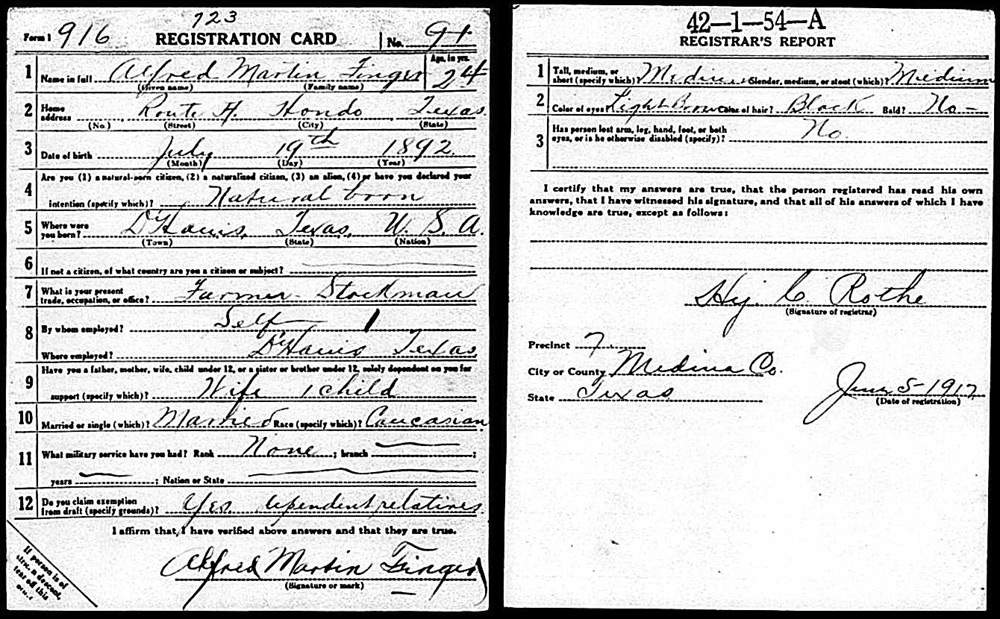 723
Form 1 916 REGISTRATION CARD No. 91
1 Name in full Alfred Martin Finger Age, in yrs. 24
(Given name) (Family name)
2 Home address Route A. Hondo Texas
(No.) (Street) (City) (State)
3 Date of birth July 19th 1892
(Month) (Day) (Year)
4 Are you (1) a natural-born citizen, (2) a naturalized citizen, (3) an alien, (4) or have you declared your
intention (specify which)? Natural born
5 Where were you born? D'Hanis, Texas, U. S. A.
(Town) (State) (Nation)
6 If not a citizen, of what country are you a citizen or subject?
7 What is your present trade, occupation, or office? Farmer - Stockman
8 By whom employed? Self 1
Where employed? D'Hanis Texas
9 Have you a father, mother, wife, child under 12, or a sister or brother under 12, solely dependent on you for
support (specify which)? Wife 1 child
10 Married or single (which)? Married Race (specify which)? Caucasian
11 What military service have you had? Rank None; branch ;
years ; Nation or State
12 Do you claim exemption from draft (specify grounds)? Yes dependent relatives
I affirm that I have verified above answers and that they are true.
Alfred Martin Finger
(Signature or mark)
If person is of
African descent,
tear off this
corner
42-1-54-A
REGISTRAR'S REPORT
1 Tall, medium, or short (specify which)? Medium Slender, medium, or stout (which)? Medium
2 Color of eyes? Light Brown Color of hair? Black Bald? No -
3 Has person lost arm, leg, hand, foot, or both
eyes, or is he otherwise disabled (specify)? No.
I certify that my answers are true, that the person registered has read his own
answers, that I have witnessed his signature, and that all of his answers of which I have
knowledge are true, except as follows:
Hy. C. Rothe
(Signature of registrar)
Precinct 7
City or County Medina Co.
State Texas
June 5-1917
(Date of registration)